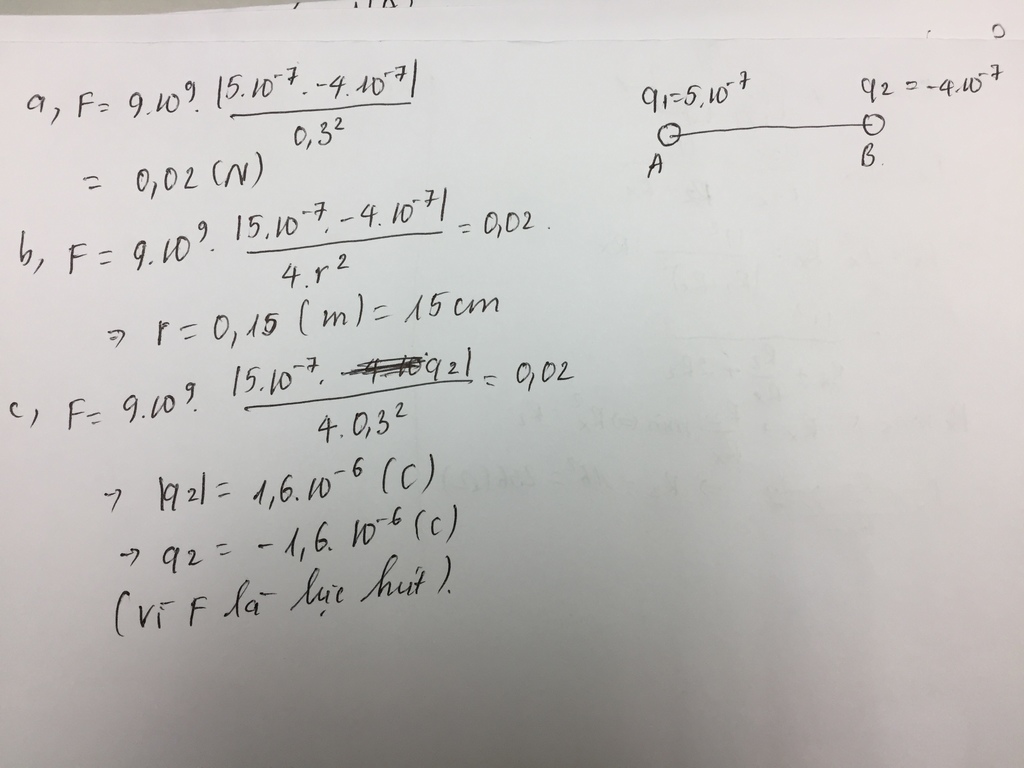 a, F = 9.10⁹. |5.10⁻⁷.-4.10⁻⁷| / 0,3²
= 0,02 (N)
b, F = 9.10⁹. |5.10⁻⁷.-4.10⁻⁷| / 4.r² = 0,02.
⇒ r = 0,15 (m) = 15 cm
c, F = 9.10⁹. |5.10⁻⁷. q2| / 4.0,3² = 0,02
→ |q2| = 1,6.10⁻⁶ (C)
→ q2 = -1,6.10⁻⁶ (C)
(Vì F là lực hút).
q1=5.10⁻⁷ q2 = -4.10⁻⁷
A B.